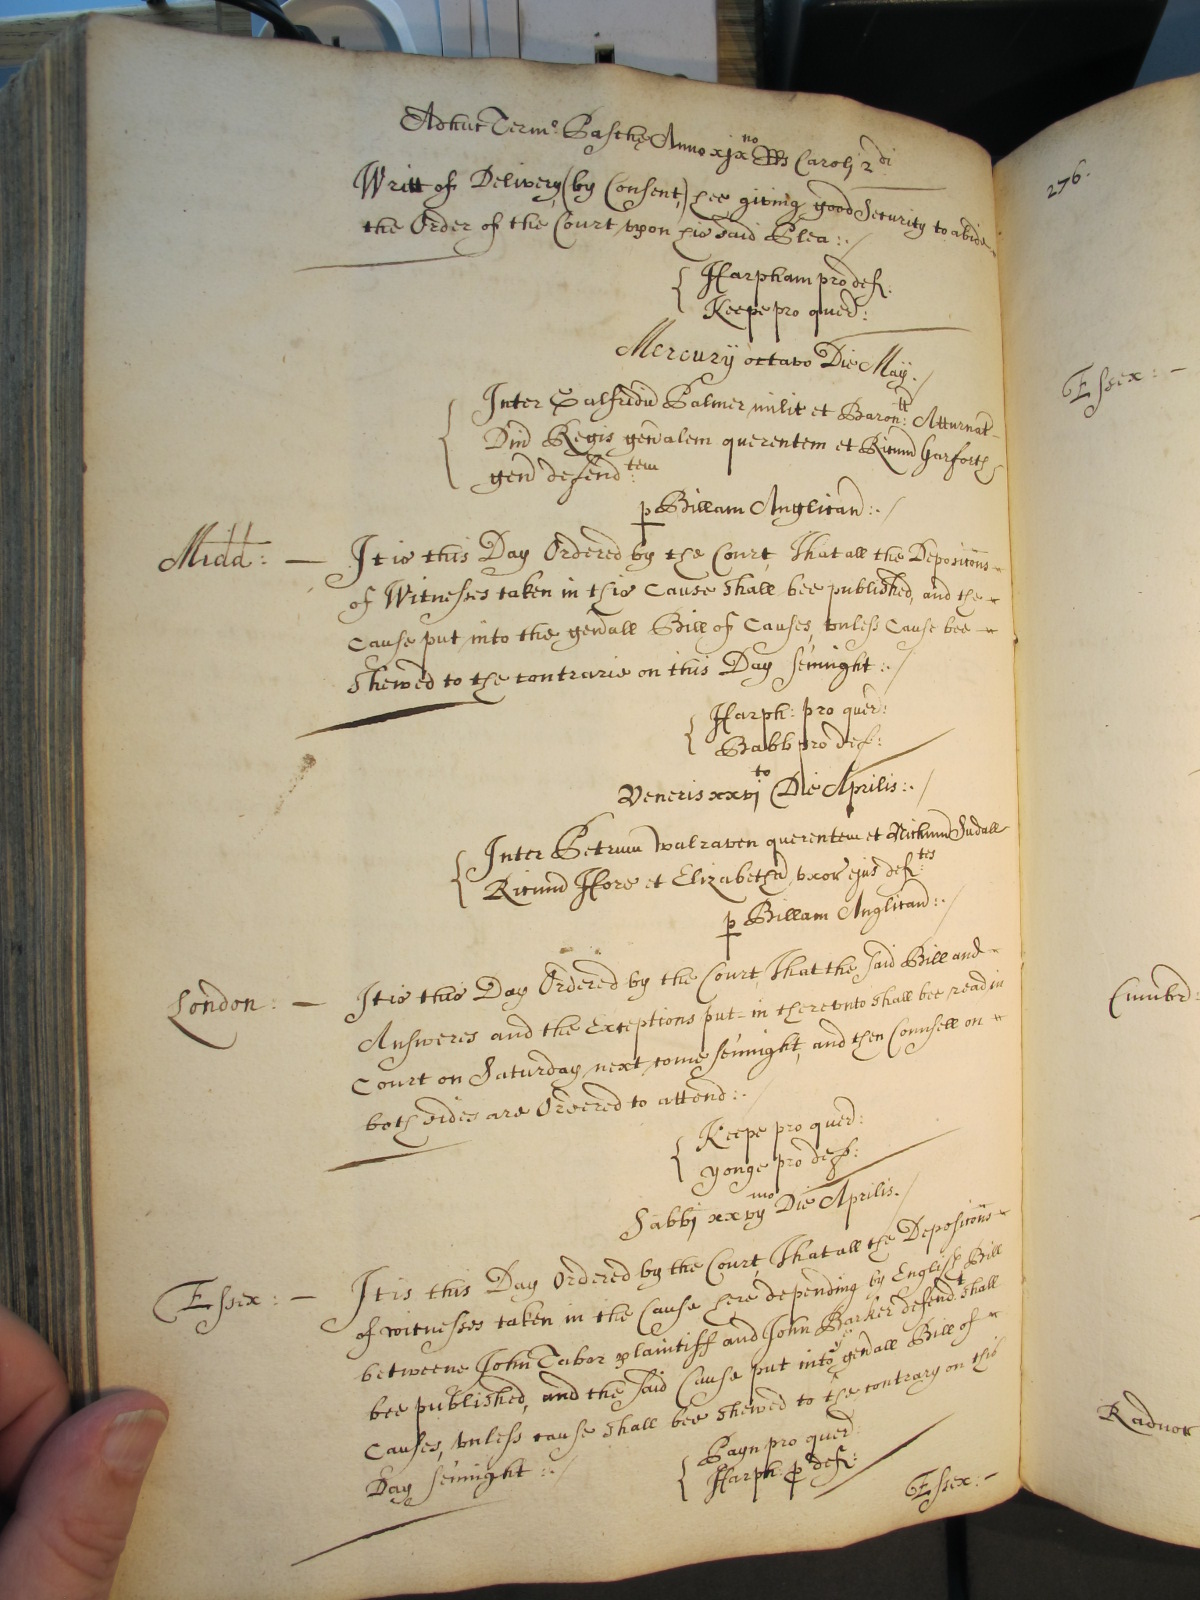 Adhuc Term͠o Paschę Anno xjx no Rs Caroli 2 di
Writt of Delivery (by Consent,) hee giving good Security to abide
the Order of the Court vpon his said Plea:.
Harpham pro def:
Keepe pro quer:
Mercurij octavo Die Maij.
Inter Galfridu Palmer milit et Baron: tt Atturnat
Dni Regis gen̄alem querentem et Ricum Garforth
gen̄ defend: tem
p Billam Anglican:.
Midd: — It is this Day Ordered by the Court, That all the Deposicons
of Witnesses taken in this Cause shall bee published, and the
Cause put into the gen̄all Bill of Causes, vnless Cause bee
shewed to the contrarie on this Day sennight:.
Harph: pro quer:
Babb pro def:
Veneris xxvj to Die Aprilis:.
Inter Petrum Walraven querentem et Nichum Judall
Ricum Hore et Elizabetha vxor ejus def: tes
p Billam Anglican:.
London: — It is this Day Ordered by the Court, That the said Bill and
Answeres and the Exceptions put in therevnto shall bee read in
Court on Saturday next come sennight, and then Counsell on
both sides are Ordered to attend:.
Keepe pro quer:
Yonge pro def:
Sabbi xxvij mo Die Aprilis.
Essex: — It is this Day Ordered by the Court, That all the Deposicons
of witnesses taken in the Cause here depending by English Bill
betweene John Tabor plaintiff and John Barker defend t shall
bee published, and the said Cause put into ye gen̄all Bill of
Causes, vnless cause shall bee shewed to the contrary on this
Day sennight:.
Payn pro quer
Harph: p def:
Essex: —
276.
Essex: —
Cumbr:
Radnor